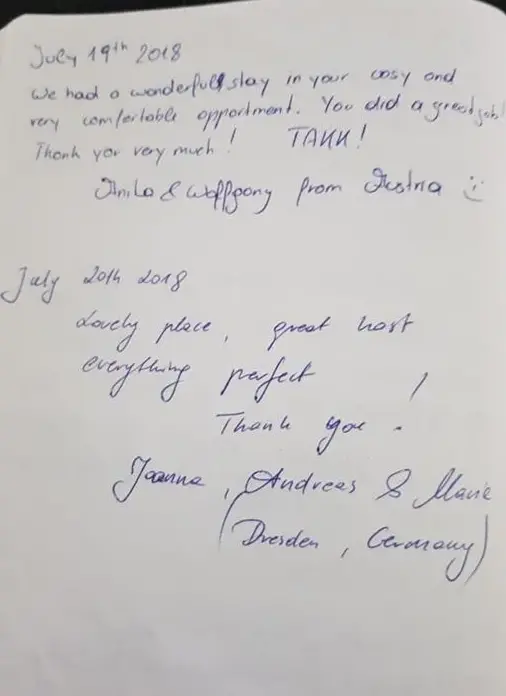 July 19th 2018
We had a wonderfull stay in your cosy and
very comfortable appartment. You did a great job!
Thank you very much! TAKK!
Anita & Wolfgang from Austria :)
July 20th 2018
Lovely place, great host
everything perfect !
Thank you.
Joanna, Andreas & Marie
(Dresden, Germany)